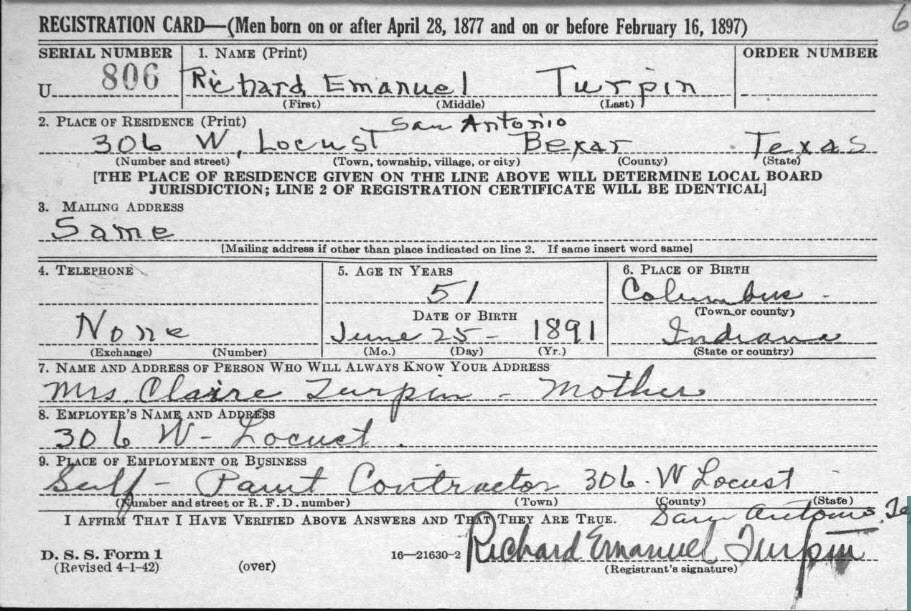 6
REGISTRATION CARD—(Men born on or after April 28, 1877 and on or before February 16, 1897)
SERIAL NUMBER 1. NAME (Print) ORDER NUMBER
U 806 Richard Emanuel Turpin
(First) (Middle) (Last)
2. PLACE OF RESIDENCE (Print) San Antonio
306 W. Locust Bexar Texas
(Number and street) (Town, township, village, or city) (County) (State)
[THE PLACE OF RESIDENCE GIVEN ON THE LINE ABOVE WILL DETERMINE LOCAL BOARD
JURISDICTION; LINE 2 OF REGISTRATION CERTIFICATE WILL BE IDENTICAL]
3. MAILING ADDRESS
Same
[Mailing address if other than place indicated on line 2. If same insert word same]
4. TELEPHONE 5. AGE IN YEARS 6. PLACE OF BIRTH
51 Columbus
DATE OF BIRTH (Town or county)
None June 25- 1891 Indiana
(Exchange) (Number) (Mo.) (Day) (Yr.) (State or country)
7. NAME AND ADDRESS OF PERSON WHO WILL ALWAYS KNOW YOUR ADDRESS
Mrs. Claire Turpin - Mother
8. EMPLOYER'S NAME AND ADDRESS
306 W- Locust.
9. PLACE OF EMPLOYMENT OR BUSINESS
Self - Paint Contractor 306. W Locust
(Number and street or R. F. D. number) (Town) (County) (State)
I AFFIRM THAT I HAVE VERIFIED ABOVE ANSWERS AND THAT THEY ARE TRUE. San Antonio. Te
D. S. S. Form 1 16—21630-2 Richard Emanuel Turpin
(Revised 4-1-42) (over) (Registrant's signature)